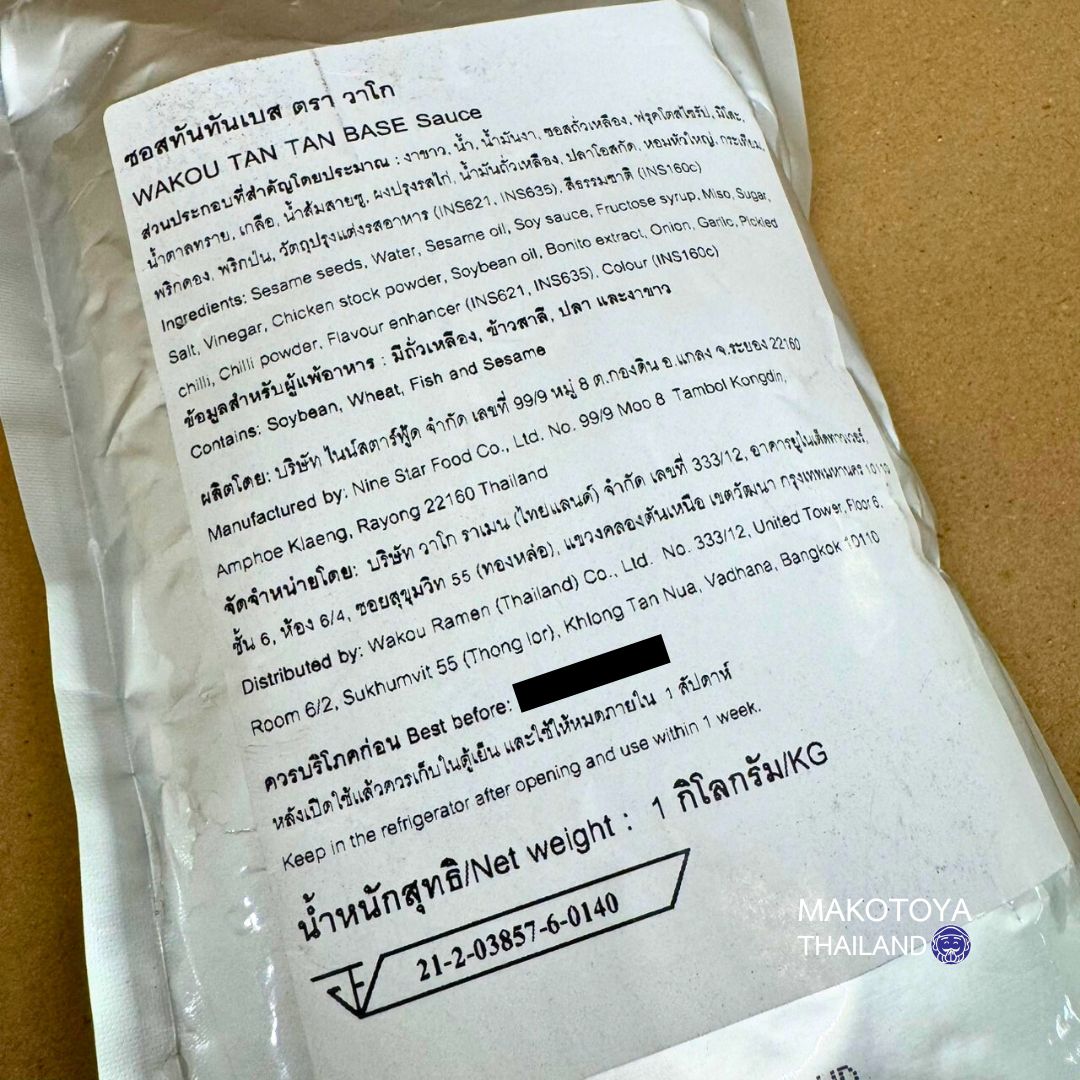 ซอสทันทันเบส ตรา วาโก
WAKOU TAN TAN BASE Sauce
ส่วนประกอบที่สำคัญโดยประมาณ : งาขาว, น้ำ, น้ำมันงา, ซอสถั่วเหลือง, ฟรุคโตสไซรัป, มิโสะ,
น้ำตาลทราย, เกลือ, น้ำส้มสายชู, ผงปรุงรสไก่, น้ำมันถั่วเหลือง, ปลาโอสกัด, หอมหัวใหญ่, กระเทียม,
พริกดอง, พริกป่น, วัตถุปรุงแต่งรสอาหาร (INS621, INS635), สีธรรมชาติ (INS160c)
Ingredients: Sesame seeds, Water, Sesame oil, Soy sauce, Fructose syrup, Miso, Sugar,
Salt, Vinegar, Chicken stock powder, Soybean oil, Bonito extract, Onion, Garlic, Pickled
chilli, Chilli powder, Flavour enhancer (INS621, INS635), Colour (INS160c)
ข้อมูลสำหรับผู้แพ้อาหาร : มีถั่วเหลือง, ข้าวสาลี, ปลา และงาขาว
Contains: Soybean, Wheat, Fish and Sesame
ผลิตโดย: บริษัท ไนน์สตาร์ฟู้ด จำกัด เลขที่ 99/9 หมู่ 8 ต.กองดิน อ.แกลง จ.ระยอง 22160
Manufactured by: Nine Star Food Co., Ltd. No. 99/9 Moo 8 Tambol Kongdin,
Amphoe Klaeng, Rayong 22160 Thailand
จัดจำหน่ายโดย: บริษัท วาโก ราเมน (ไทยแลนด์) จำกัด เลขที่ 333/12, อาคารยูไนเต็ดทาวเวอร์,
ชั้น 6, ห้อง 6/4, ซอยสุขุมวิท 55 (ทองหล่อ), แขวงคลองตันเหนือ เขตวัฒนา กรุงเทพมหานคร 10110
Distributed by: Wakou Ramen (Thailand) Co., Ltd. No. 333/12, United Tower, Floor 6,
Room 6/2, Sukhumvit 55 (Thong lor), Khlong Tan Nua, Vadhana, Bangkok 10110
ควรบริโภคก่อน Best before:
หลังเปิดใช้แล้วควรเก็บในตู้เย็น และใช้ให้หมดภายใน 1 สัปดาห์
Keep in the refrigerator after opening and use within 1 week.
น้ำหนักสุทธิ/Net weight : 1 กิโลกรัม/KG
21-2-03857-6-0140
MAKOTOYA
THAILAND